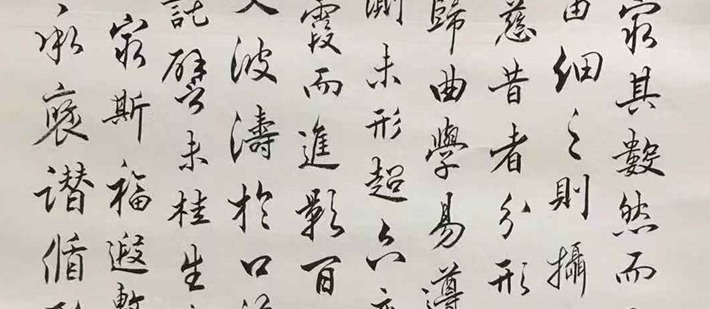 窮其數然而
細之則攝
慈昔者分形
歸曲學易遵
測未形超六
霞而進影百
波濤於口
託譬未桂生
窮斯福遐敷
承褒讚循